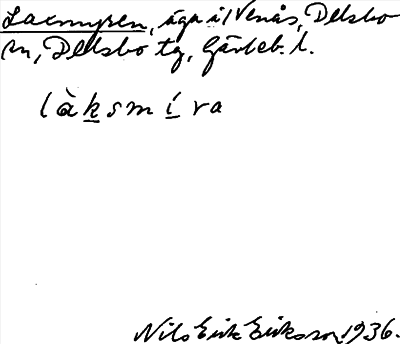 Laxmyren, äga i Venås, Delsbo
sn, Delsbo tg, Gävleb. l.
làksmíra
Nils Erik Eriksson 1936.